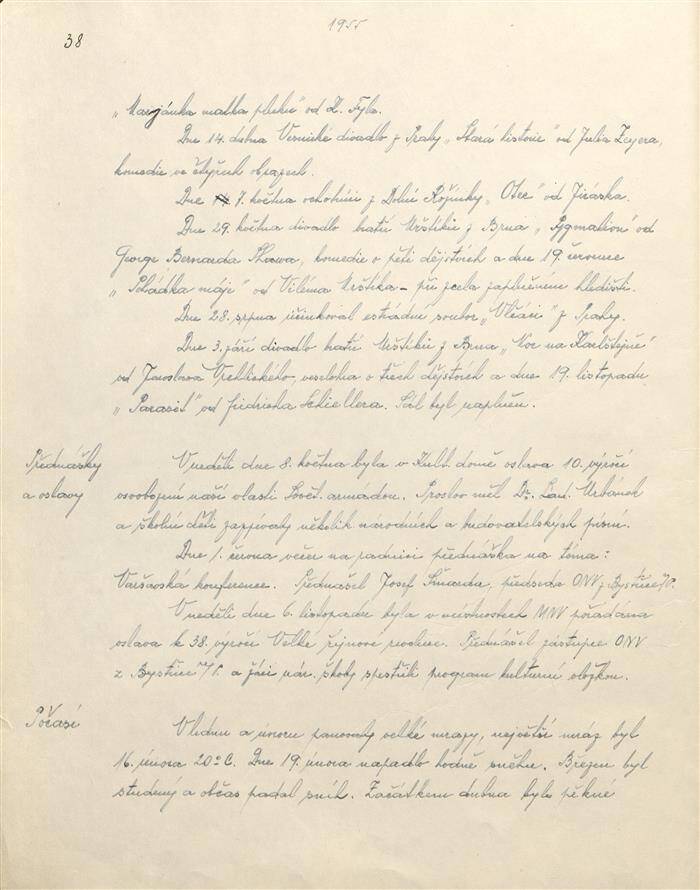 1955
38
„Marjánka matka pluku" od K. Tyla.
Dne 14. dubna Vesnické divadlo z Prahy „Stará historie" od Julia Zeyera,
komedie ve čtyřech obrazech.
Dne 7. května ochotníci z Dolní Rožínky „Otec" od Jiráska.
Dne 29. května divadlo bratří Mrštíků z Brna „Pygmalion" od
George Bernarda Shawa, komedie o pěti dějstvích a dne 19. července
„Pohádka máje" od Viléma Mrštíka – při zcela zaplněném hledišti.
Dne 28. srpna účinkoval estrádní soubor „Vlčáci" z Prahy.
Dne 3. září divadlo bratří Mrštíků z Brna „Noc na Karlštejně"
od Jaroslava Vrchlického, veselohra o třech dějstvích a dne 19. listopadu
„Parasit" od Fridricha Schiellera. Sál byl naplněn.
Přednášky
a oslavy
V neděli dne 8. května byla v Kult. domě oslava 10. výročí
osvobození naší vlasti Sovět. armádou. Proslov měl Dr. Lad. Urbánek
a školní děti zazpívaly několik národních a budovatelských písní.
Dne 1. června večer na radnici přednáška na téma:
Varšavská konference. Přednášel Josef Šmarda, předseda ONV z Bystřice n/P.
V neděli dne 6. listopadu byla v místnostech MNV pořádána
oslava k 38. výročí Velké říjnové revoluce. Přednášel zástupce ONV
z Bystřice n/P. a žáci nár. školy zpestřili program kulturní vložkou.
Počasí
V lednu a únoru panovaly velké mrazy, největší mráz byl
16. února 20° C. Dne 19. února napadlo hodně sněhu. Březen byl
studený a občas padal sníh. Začátkem dubna bylo pěkné